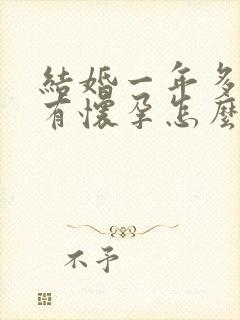 結婚一年多
有懷孕怎麼
不予